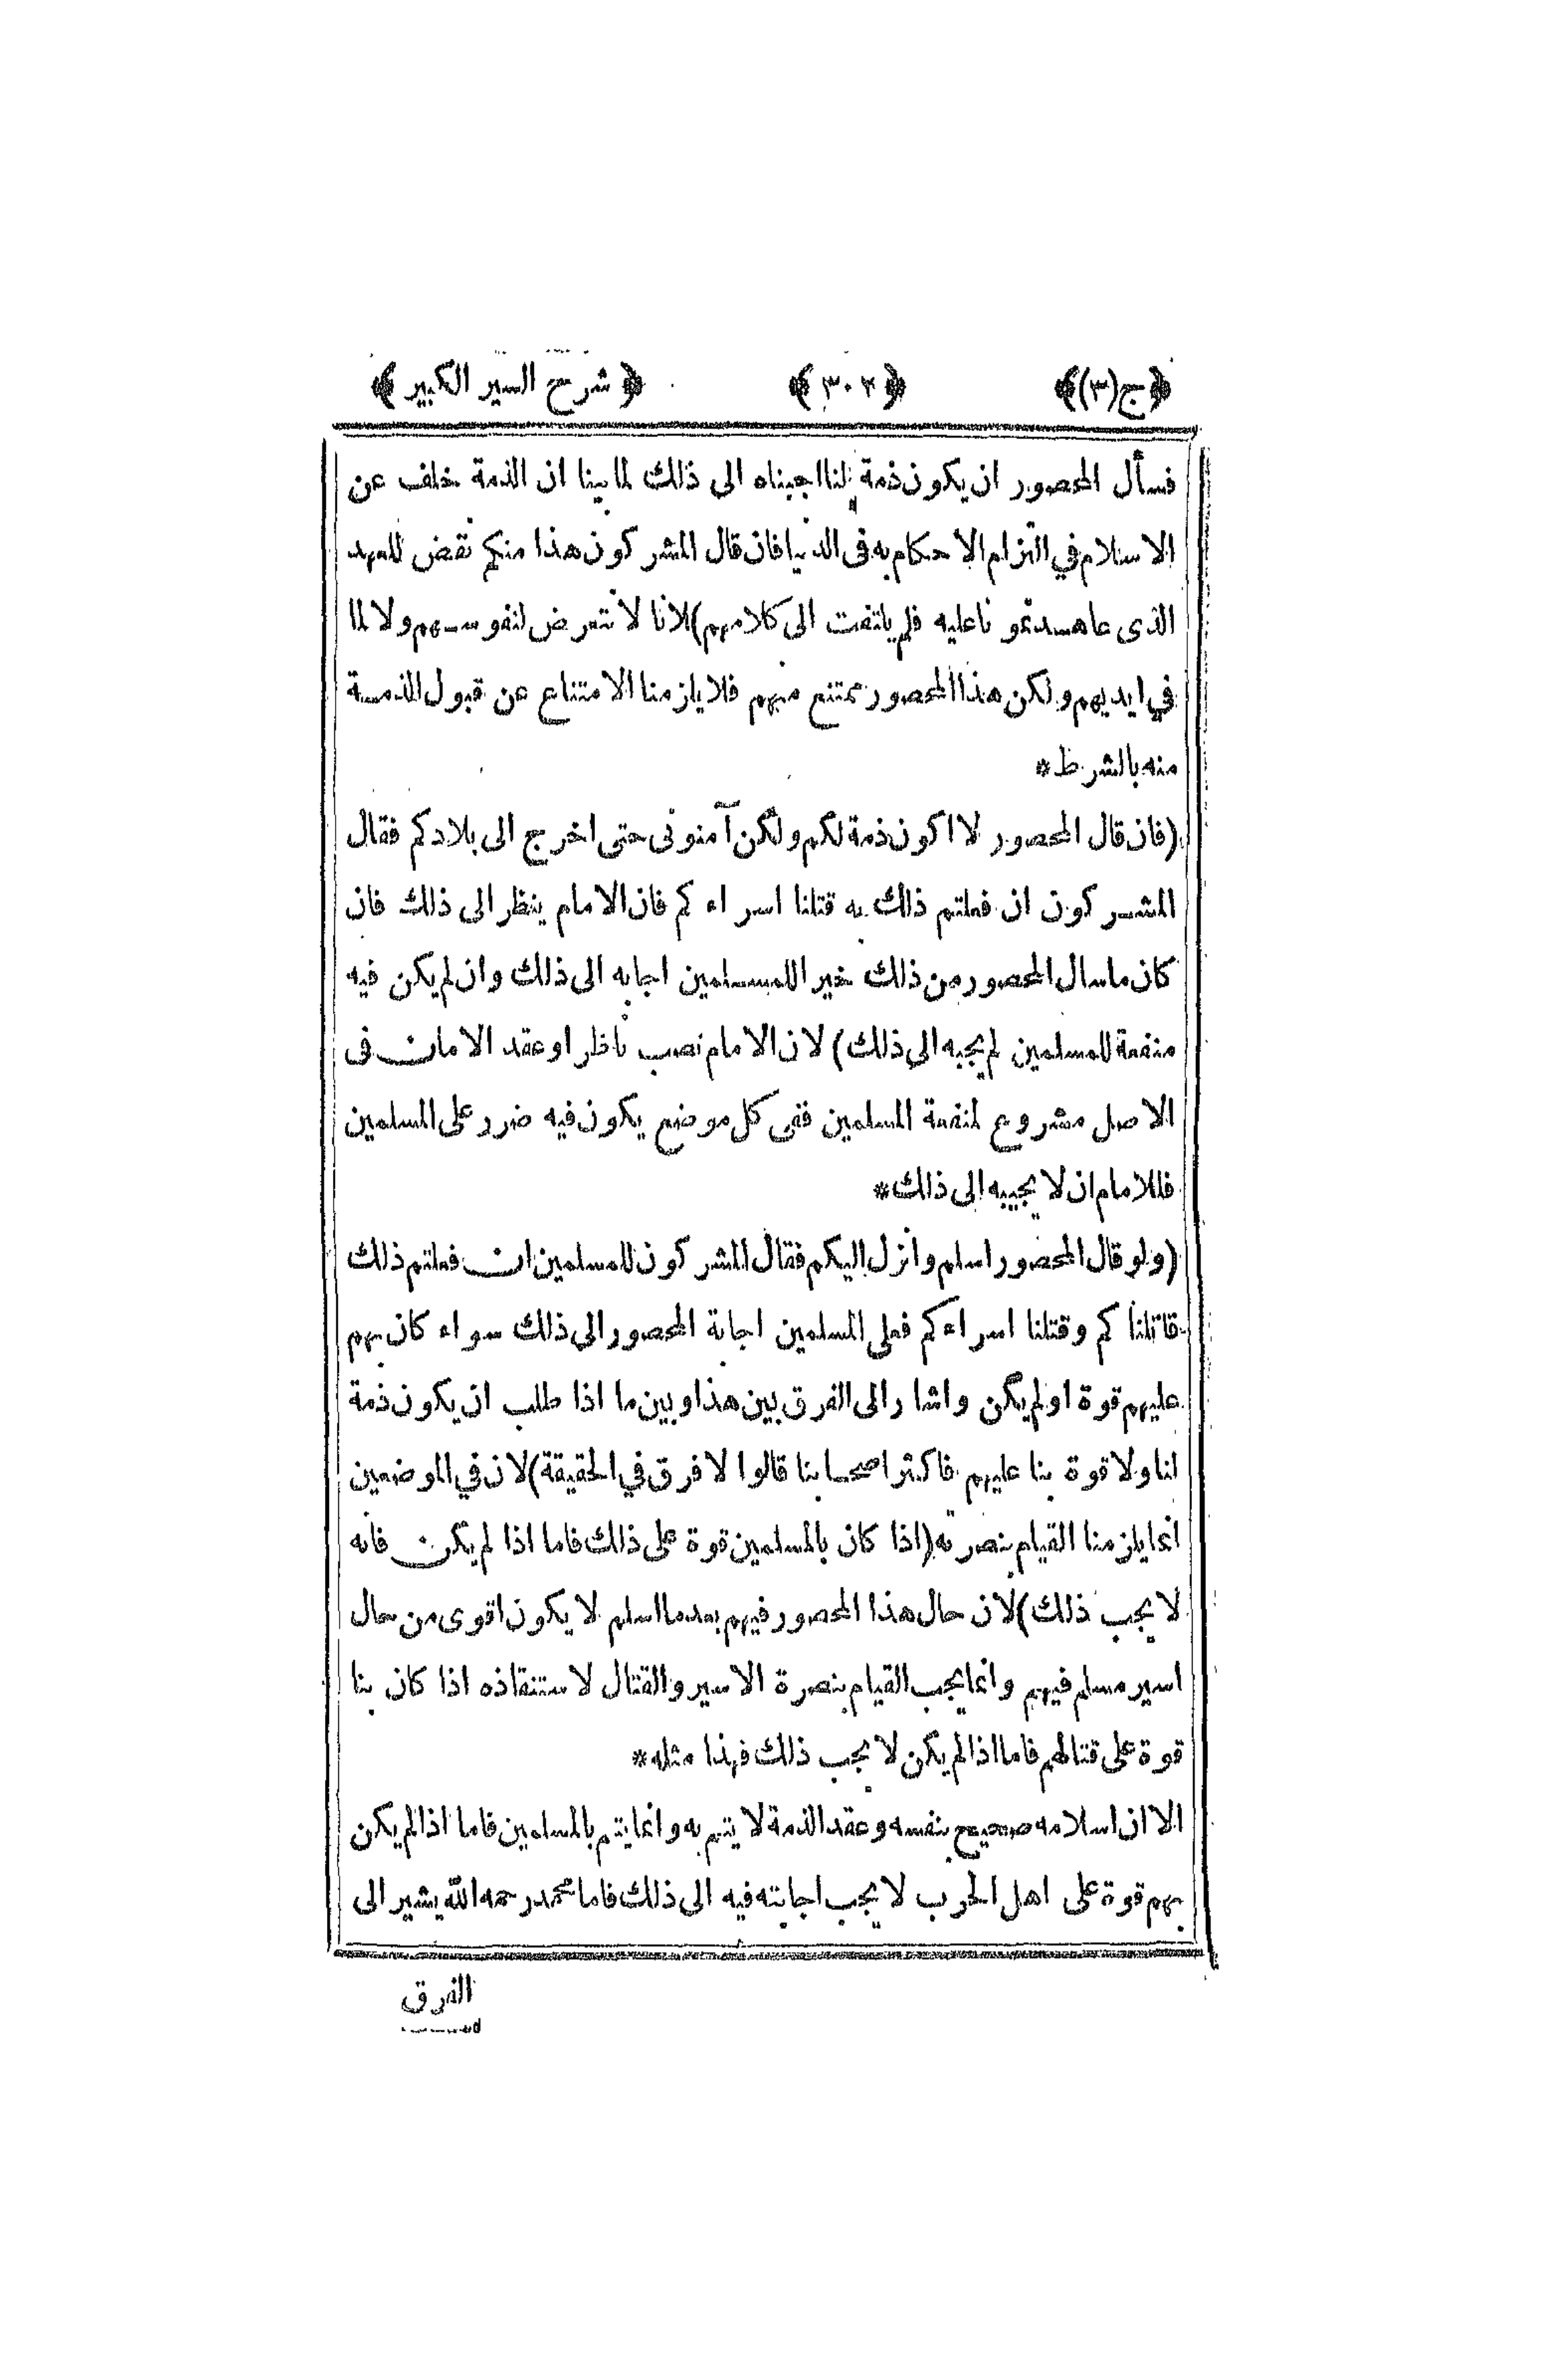 ﴿ج(٣)﴾ ﴿٣٠٢﴾ ﴿شرح السير الكبير﴾
فسأل المحصور ان يكون ذمة لنا اجبناه الى ذلك لما بينا ان الذمة خلف عن
الاسلام في التزام الاحكام به فى الدنيا فان قال المشركون هذا منكم نقض للعهد
الذى عاهدتمونا عليه فلم يلتفت الى كلامهم) لانا لا نتعرض لنفوسهم ولا لما
في ايديهم ولكن هذا المحصور ممتنع منهم فلا يلزمنا الامتناع عن قبول الذمة
منه بالشرط*
(فان قال المحصور لا اكون ذمة لكم ولكن آمنونى حتى اخرج الى بلادكم فقال
المشركون ان فعلتم ذلك به قتلنا اسراءكم فان الامام ينظر الى ذلك فان
كان ما سال المحصور من ذلك خيرا للمسلمين اجابه الى ذلك وان لم يكن فيه
منفعة للمسلمين لم يجبه الى ذلك) لان الامام نصب ناظرا وعقد الامان فى
الاصل مشروع لمنفعة المسلمين ففى كل موضع يكون فيه ضرر على المسلمين
فللامام ان لا يجيبه الى ذلك*
(ولو قال المحصور اسلم وانزل اليكم فقال المشركون للمسلمين ان فعلتم ذلك
قاتلناكم وقتلنا اسراءكم فعلى المسلمين اجابة المحصور الى ذلك سواء كان بهم
عليهم قوة او لم يكن واشار الى الفرق بين هذا وبين ما اذا طلب ان يكون ذمة
لنا ولا قوة بنا عليهم فاكثر اصحابنا قالوا لا فرق في الحقيقة) لان في الموضعين
انما يلزمنا القيام بنصرته (اذا كان بالمسلمين قوة على ذلك فاما اذا لم يكن فانه
لا يجب ذلك) لان حال هذا المحصور فيهم بعد ما اسلم لا يكون اقوى من حال
اسير مسلم فيهم وانما يجب القيام بنصرة الاسير والقتال لاستنقاذه اذا كان بنا
قوة على قتالهم فاما اذا لم يكن لا يجب ذلك فهذا مثله*
الا ان اسلامه صحيح بنفسه وعقد الذمة لا يتم به وانما يتم بالمسلمين فاما اذا لم يكن
بهم قوة على اهل الحرب لا يجب اجابته فيه الى ذلك فاما محمد رحمه الله يشير الى
الفرق